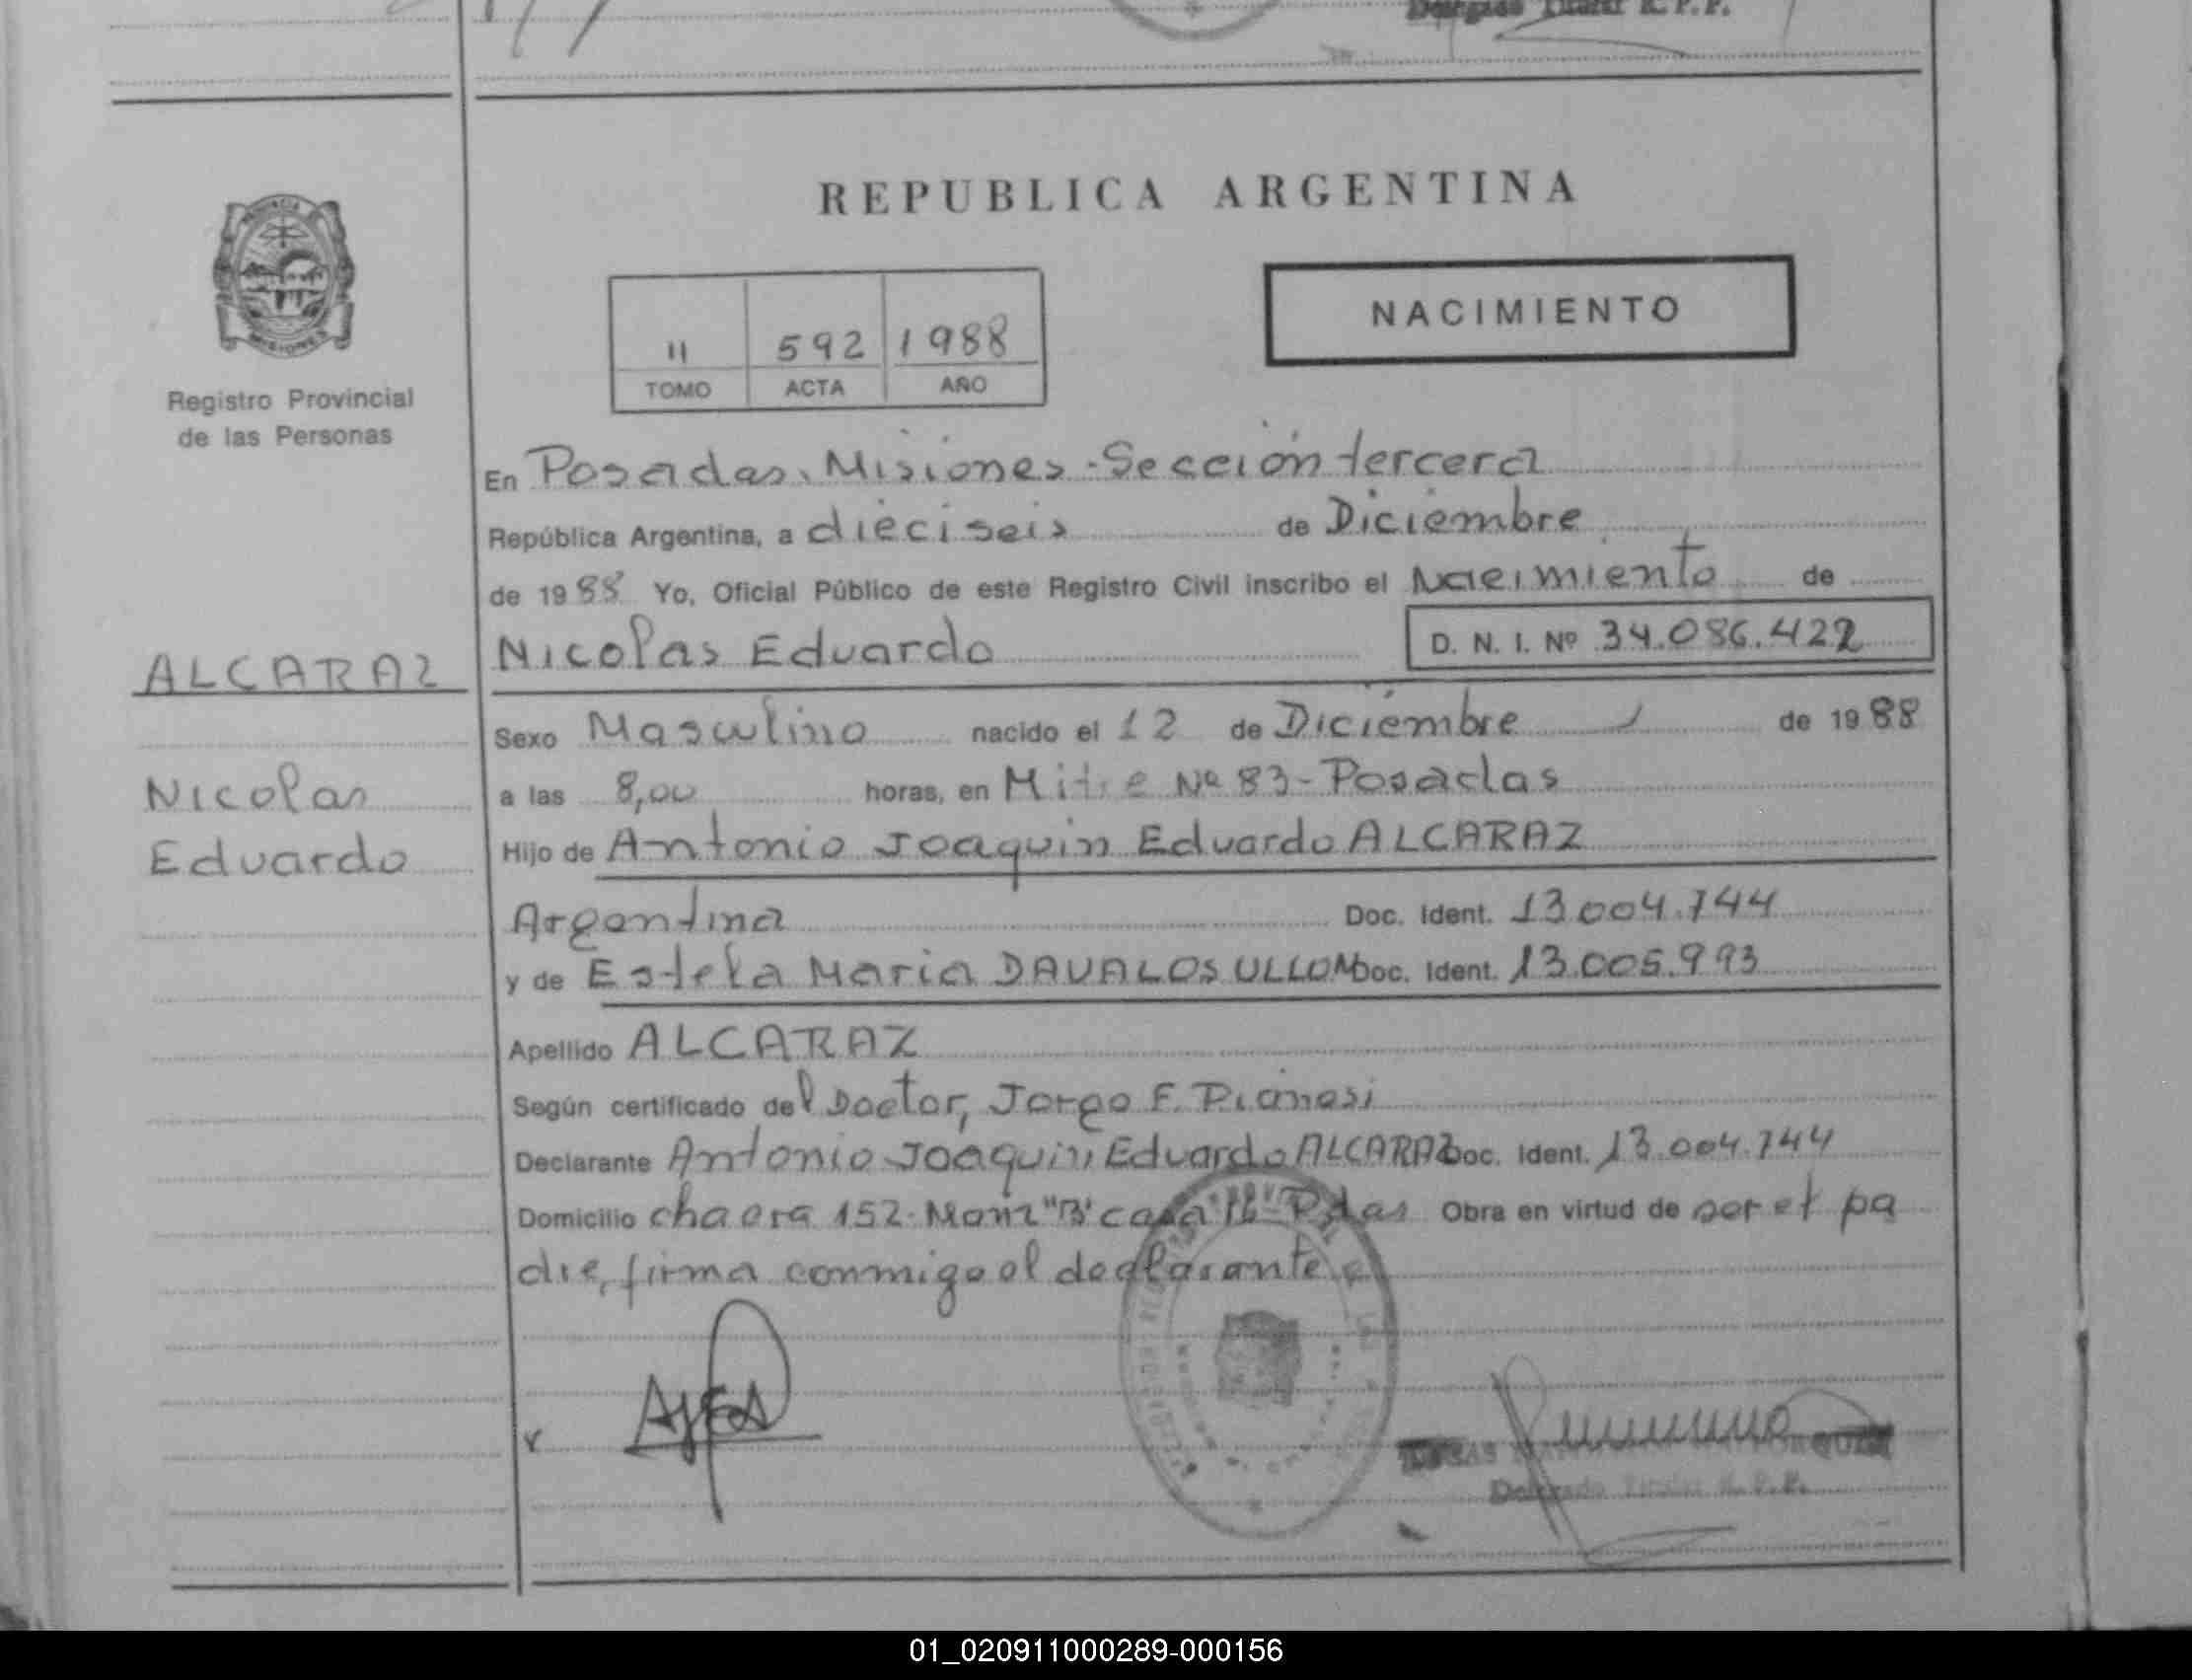 Delegado Titular R. P. P.
REPUBLICA ARGENTINA
PROVINCIA DE
MISIONES
Registro Provincial
de las Personas
NACIMIENTO
II 592 1988
TOMO ACTA AÑO
En Posadas, Misiones - Sección tercera
República Argentina, a dieciseis de Diciembre
de 1988 Yo, Oficial Público de este Registro Civil inscribo el Nacimiento de
ALCARAZ
Nicolas Eduardo D. N. I. Nº 34.086.422
Sexo Masculino nacido el 12 de Diciembre de 1988
Nicolas
a las 8,00 horas, en Mitre Nº 83 - Posadas
Eduardo
Hijo de Antonio Joaquin Eduardo ALCARAZ
Argentina Doc. Ident. 13.004.744
y de Estela Maria DAVALOS ULLON Doc. Ident. 13.005.993
Apellido ALCARAZ
Según certificado del Doctor, Jorge F. Pianesi
Declarante Antonio Joaquin Eduardo ALCARAZ Doc. Ident. 13.004.744
Domicilio chacra 152 - Manz "B" casa 16 - Pdas Obra en virtud de ser el pa
dre, firma conmigo el declarante
Delegado Titular R. P. P.
01_020911000289-000156